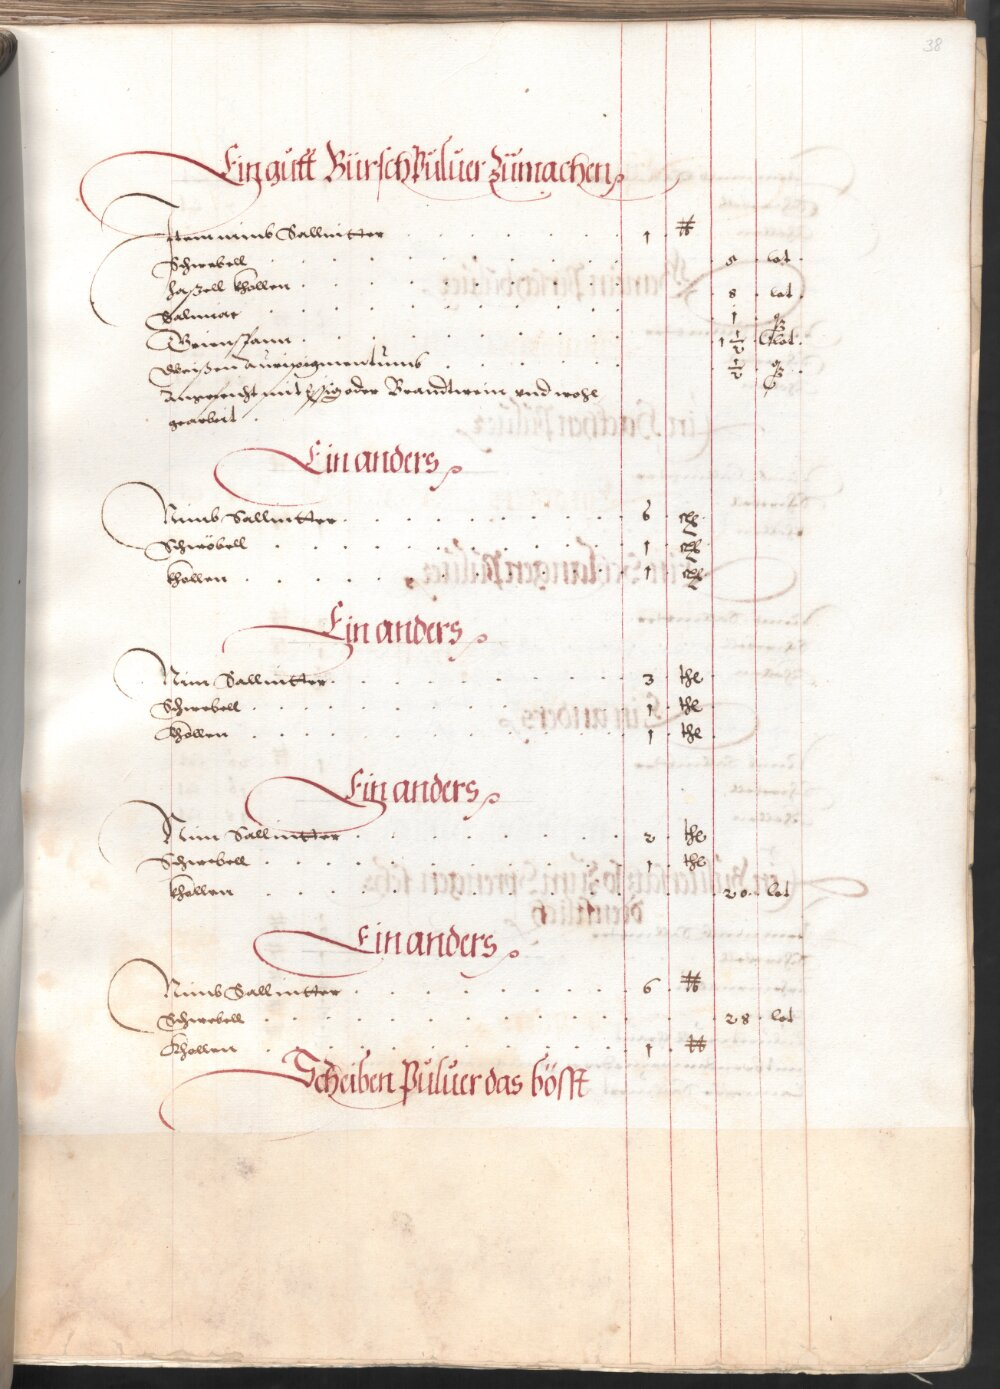 38
Ein gutt Bürsch Puluer Zumachen
Item nimb Salluitter 1 ℔
Schwebell 8 lot
haßell khollen 8 lot
Salmiac 1
1½ lot
Weißen Auripigmentumb ½
mit Eßig oder Brandtwein vnd wohl
gearbeit
Ein anders
Nimb Salluitter 6 thl
Schwöbell 1 thl
khollen 1 thl
Ein anders
Nim Salluitter 3 thl
Schwebell 1 thl
Khollen 1 thl
Ein anders
Nim Salluitter 2 thl
Schwebell 1 thl
khollen 20 lot
Ein anders
Nimb Salluitter 6 ℔
Schwebell 28 lot
Khollen 1 ℔
Scheiben Puluer das böst